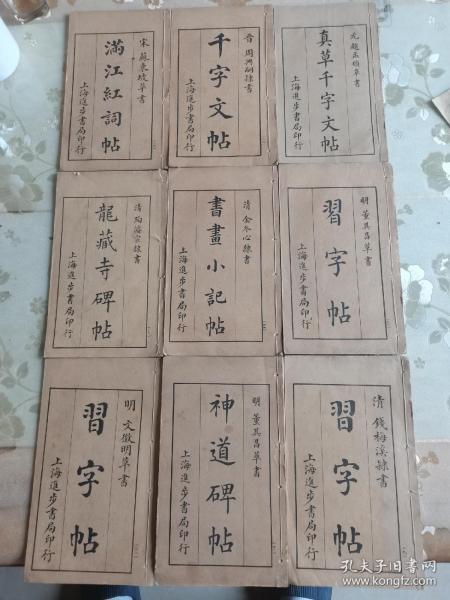 元 趙孟頫草書
真草千字文帖
上海進步書局印行
晉 周興嗣隸書
千字文帖
上海進步書局印行
宋 蘇東坡草書
滿江紅詞帖
上海進步書局印行
明 董其昌草書
習字帖
上海進步書局印行
清 金冬心隸書
書畫小記帖
上海進步書局印行
龍藏寺碑帖
上海進步書局印行
清 錢梅溪隸書
習字帖
上海進步書局印行
明 董其昌草書
神道碑帖
上海進步書局印行
明 文徵明草書
習字帖
上海進步書局印行
孔夫子旧书网
www.kongfz.com